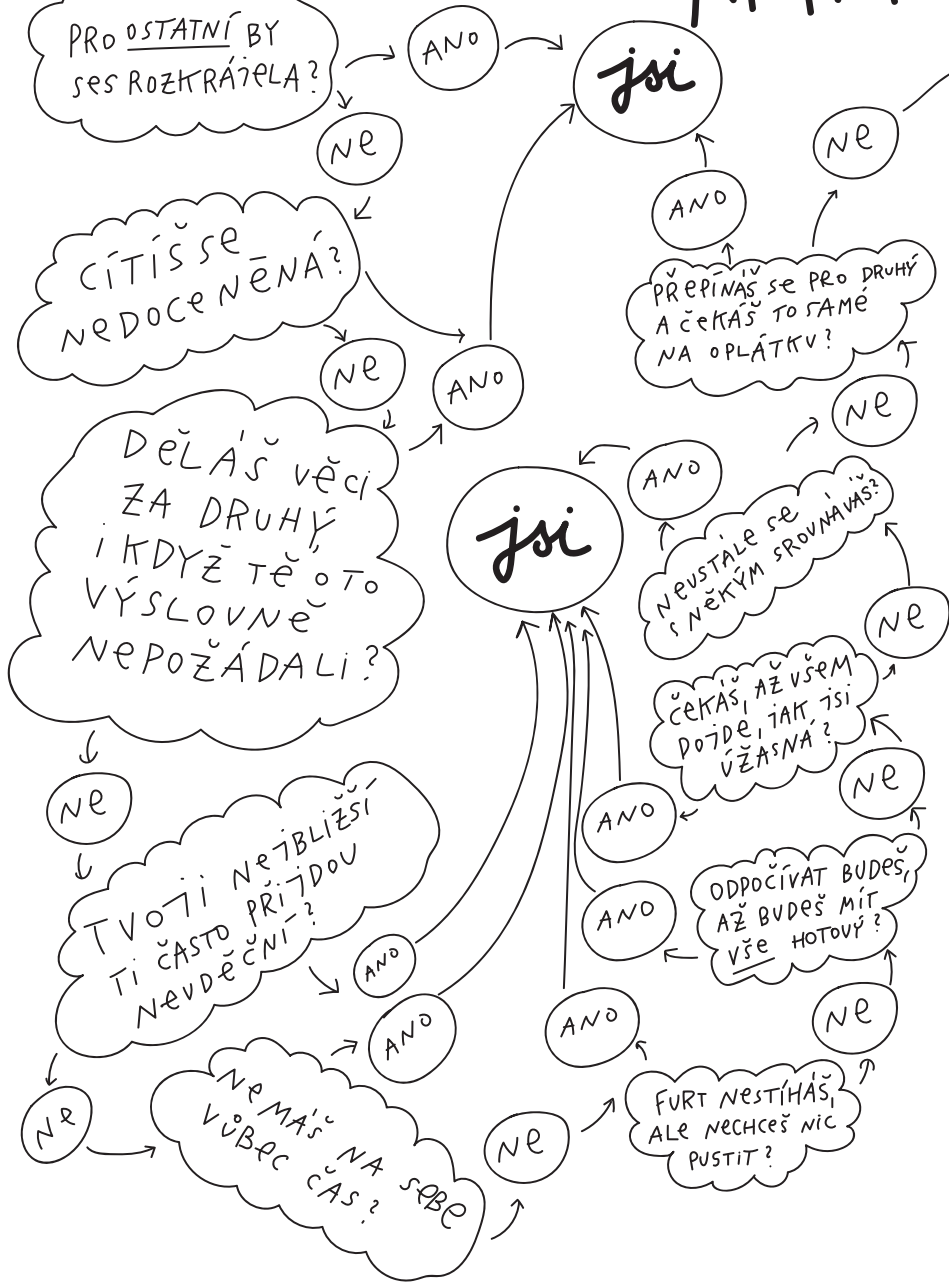 PRO OSTATNÍ BY
SES ROZKRÁJELA?
ANO
jsi
NE
NE
ANO
CÍTÍŠ SE
NEDOCENĚNÁ?
PŘEPÍNÁŠ SE PRO DRUHÝ
A ČEKÁŠ TO SAMÉ
NA OPLÁTKU?
NE
ANO
NE
DĚLÁŠ VĚCI
ZA DRUHÝ
I KDYŽ TĚ O TO
VÝSLOVNĚ
NEPOŽÁDALI?
ANO
jsi
NEUSTÁLE SE
S NĚKÝM SROVNÁVÁŠ?
NE
ČEKÁŠ, AŽ VŠEM
DOJDE, JAK JSI
ÚŽASNÁ?
NE
NE
ANO
TVOJI NEJBLIŽŠÍ
TI ČASTO PŘIJDOU
NEVDĚČNÍ?
ODPOČÍVAT BUDEŠ,
AŽ BUDEŠ MÍT
VŠE HOTOVÝ?
ANO
ANO
ANO
ANO
NE
NE
NEMÁŠ NA SEBE
VŮBEC ČAS?
NE
FURT NESTÍHÁŠ,
ALE NECHCEŠ NIC
PUSTIT?